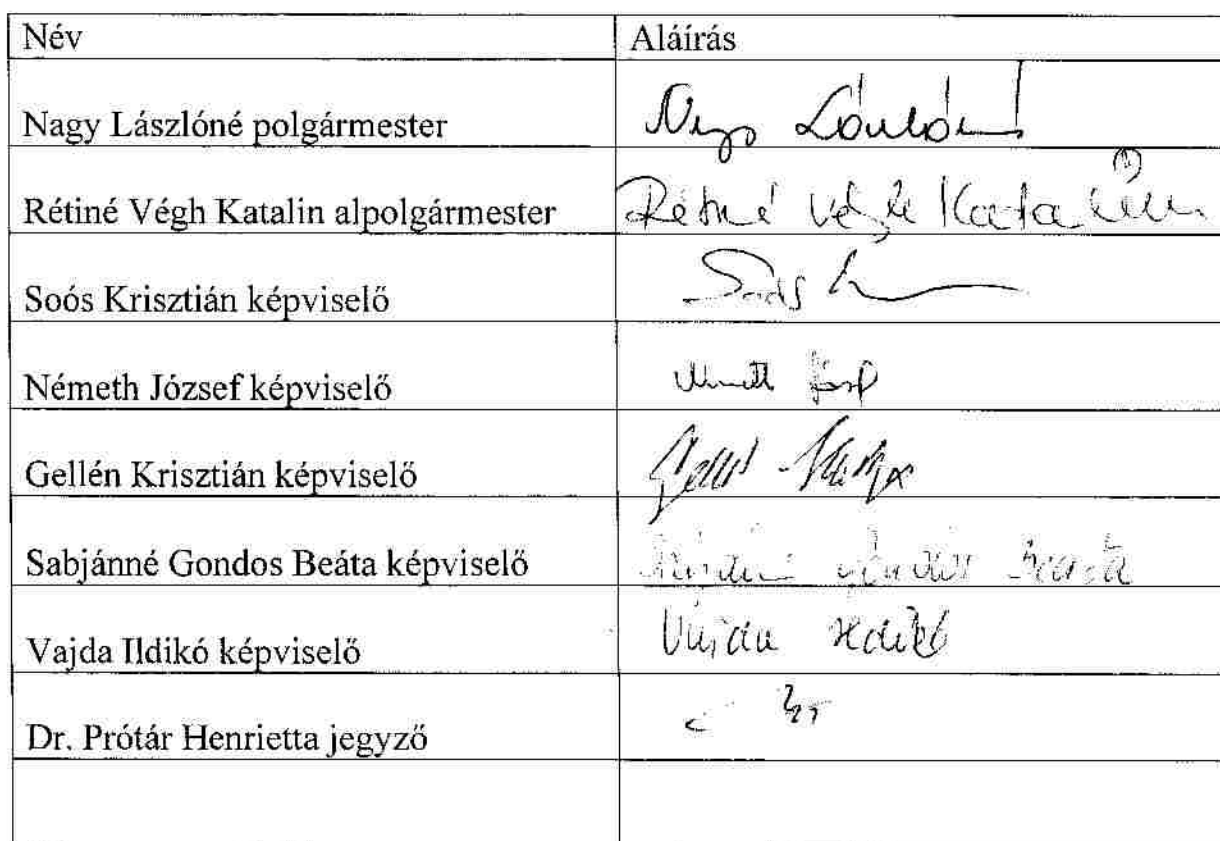 Név Aláírás
Nagy Lászlóné polgármester
Rétiné Végh Katalin alpolgármester Rétiné Végh Katalin
Soós Krisztián képviselő Soós
Németh József képviselő Németh József
Gellén Krisztián képviselő
Sabjánné Gondos Beáta képviselő Beáta
Vajda Ildikó képviselő Vajda Ildikó
Dr. Prótár Henrietta jegyző